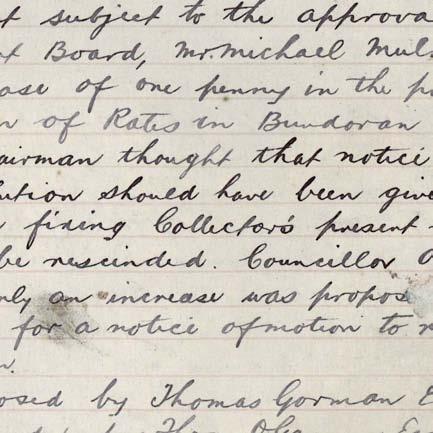 t subject to the approva
Board, Mr. Michael Mul
ase of one penny in the p
n of Rates in Bundoran
airman thought that notice
lution should have been give
fixing Collector's present
be rescinded. Councillor
nly an increase was propos
for a notice of motion to r
n.
osed by Thomas Gorman E